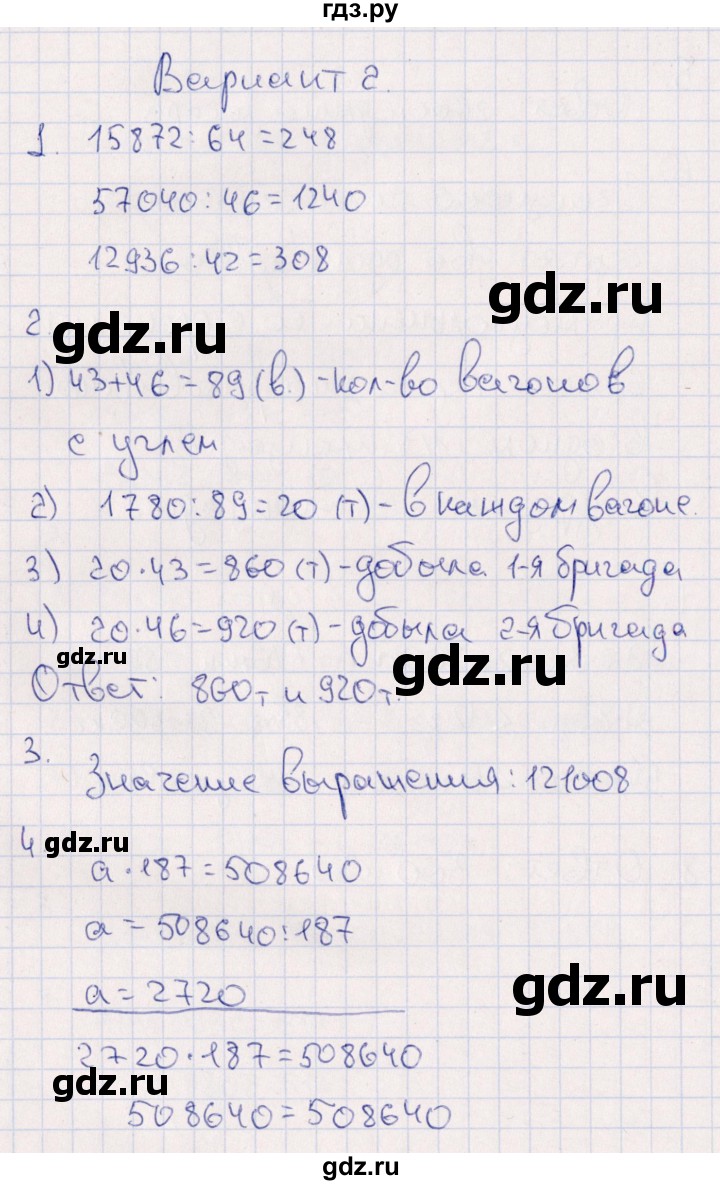 гдз.ру
Вариант 2.
1. 15872:64=248
57040:46=1240
12936:42=308
gdz.ru
2.
gdz.ru
1) 43+46=89(в.)-кол-во вагонов
с углем
2) 1780:89=20 (т)- в каждом вагоне.
3) 20·43=860 (т)-добыла 1-я бригада
4) 20·46=920 (т)-добыла 2-я бригада
gdz.ru
gdz.ru
Ответ: 860т и 920т.
3.
Значение выражения: 121008
4
gdz.ru
a·187=508640
a=508640:187
gdz.ru
a=2720
2720·187=508640
gdz.ru
508640=508640
gdz.ru